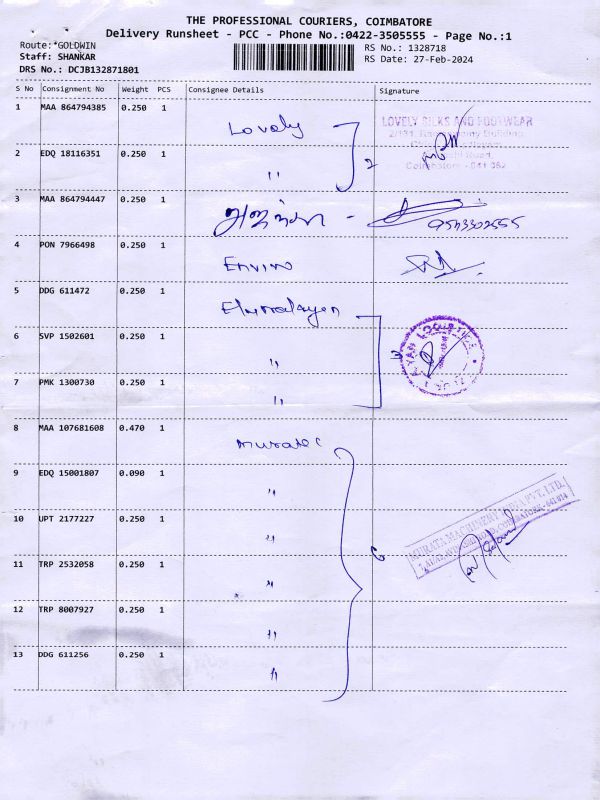 THE PROFESSIONAL COURIERS, COIMBATORE
Delivery Runsheet - PCC - Phone No.:0422-3505555 - Page No.:1
Route:*GOLDWIN
RS No.: 1328718
Staff: SHANKAR
RS Date: 27-Feb-2024
DRS No.: DCJB132871801
S No Consignment No Weight PCS Consignee Details Signature
1 MAA 864794385 0.250 1 Lovely
LOVELY SILKS AND FOOTWEAR
2 EDQ 18116351 0.250 1 〃 2
Coimbatore - 641 062
3 MAA 864794447 0.250 1 அஜந்தா -
4 PON 7966498 0.250 1 Enviro
5 DDG 611472 0.250 1
6 SVP 1502601 0.250 1 〃 3
7 PMK 1300730 0.250 1 〃
8 MAA 107681608 0.470 1
9 EDQ 15001807 0.090 1 〃
MURATA MACHINERY INDIA PVT. LTD.
10 UPT 2177227 0.250 1 〃
11 TRP 2532058 0.250 1 〃 6
12 TRP 8007927 0.250 1 〃
13 DDG 611256 0.250 1 〃